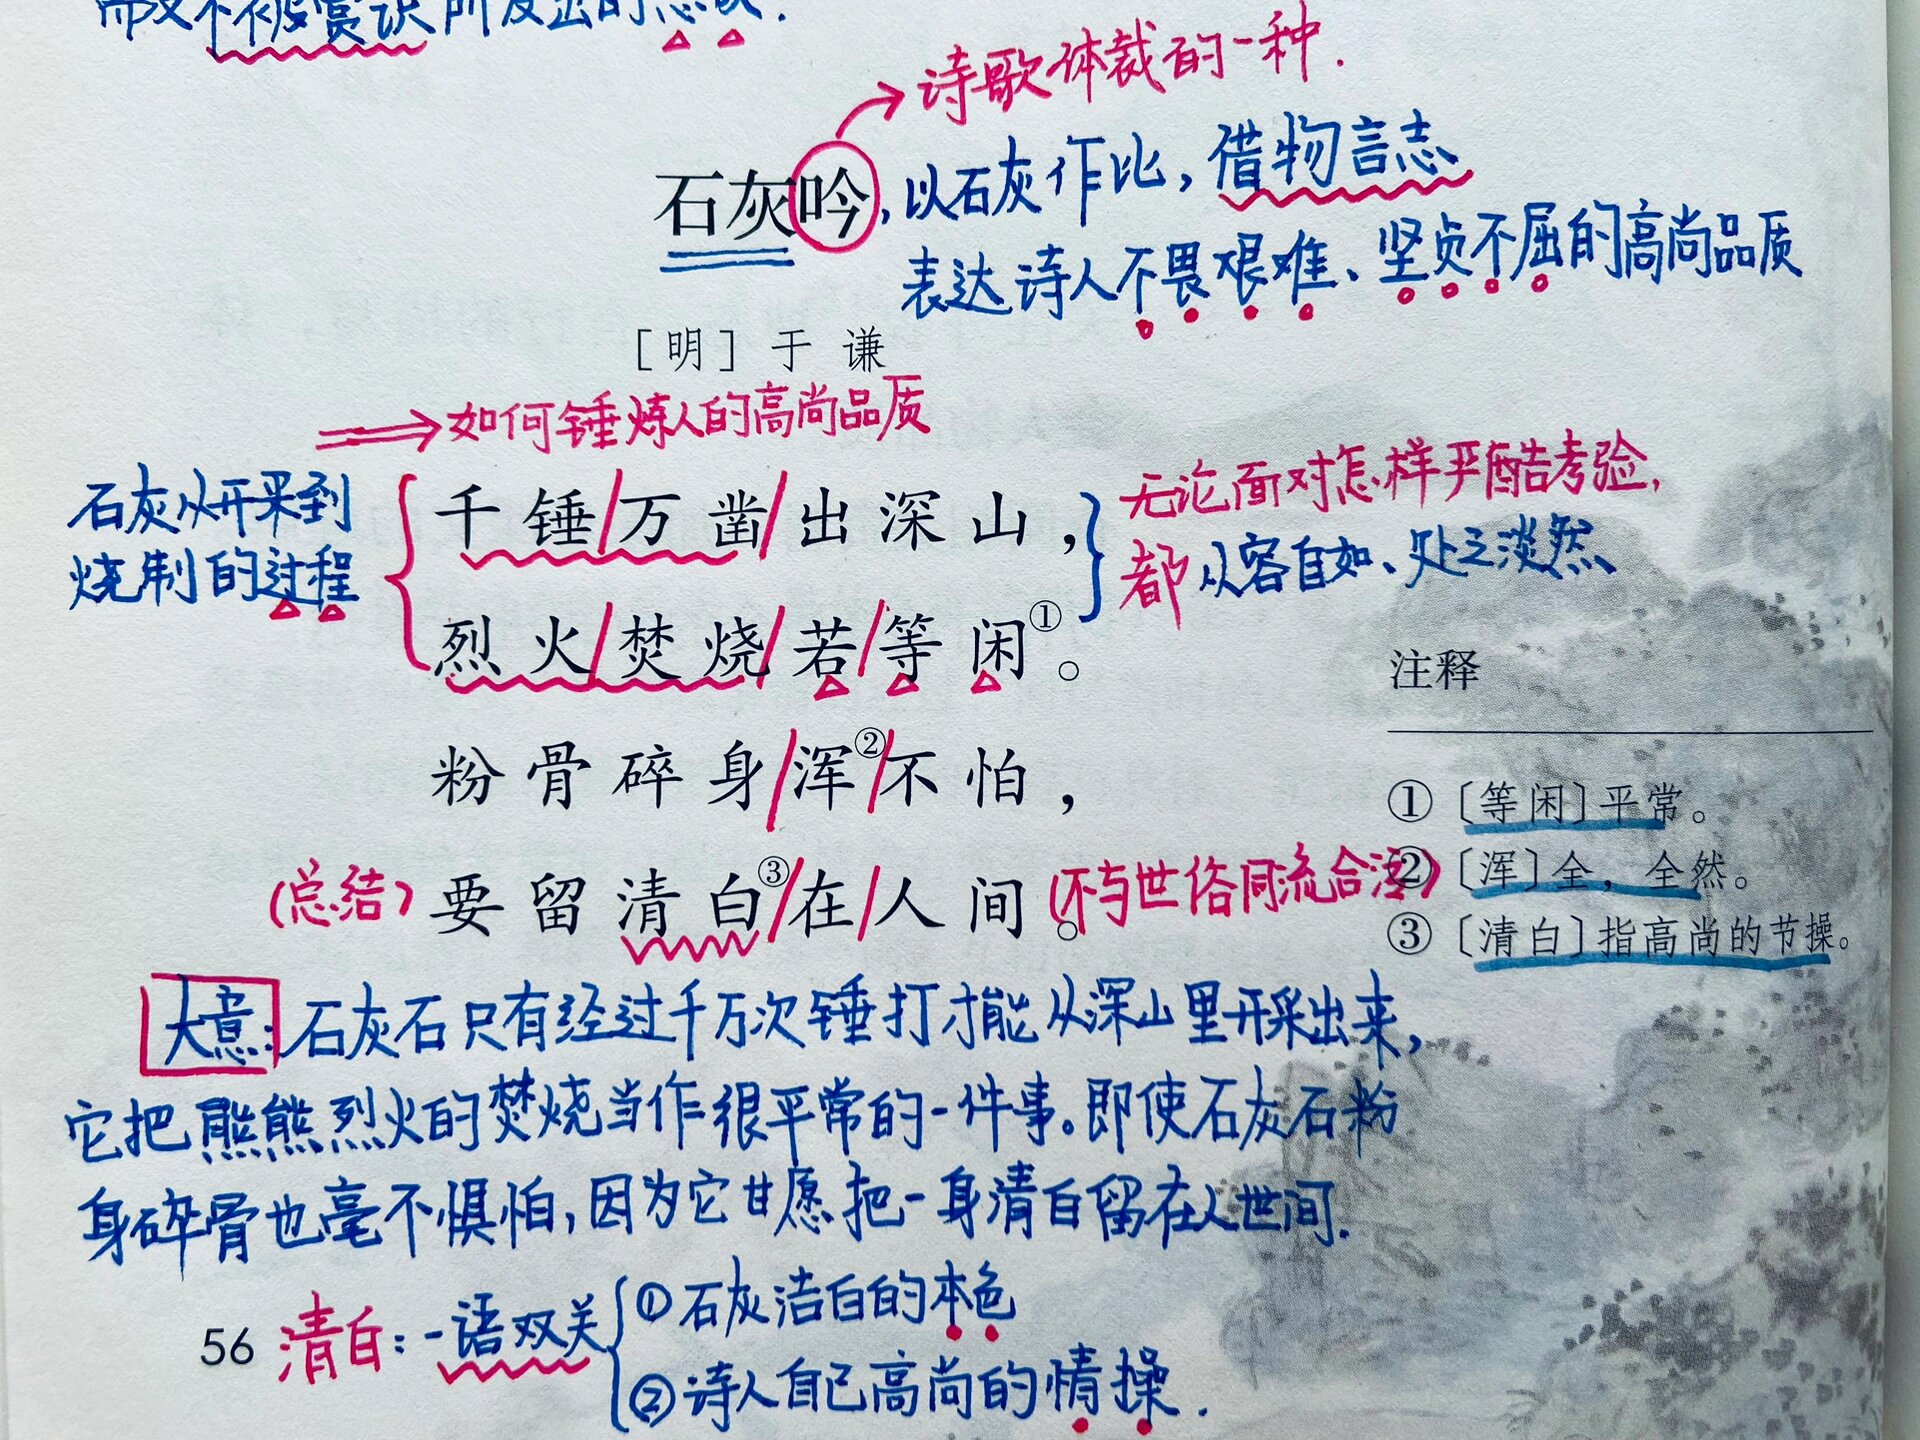 而又不被赏识所发出的感叹.
诗歌体裁的一种.
石灰吟,以石灰作比,借物言志
表达诗人不畏艰难、坚贞不屈的高尚品质
［明］于谦
如何锤炼人的高尚品质
石灰从开采到
烧制的过程
千锤/万凿/出深山，
无论面对怎样严酷考验,
都从容自如、处之淡然
烈火/焚烧/若/等闲①。
注释
粉骨碎身/浑②/不怕，
①〔等闲〕平常。
②〔浑〕全，全然。
(总结)要留清白③/在/人间。(不与世俗同流合污)
③〔清白〕指高尚的节操。
大意:石灰石只有经过千万次锤打才能从深山里开采出来,
它把熊熊烈火的焚烧当作很平常的一件事。即使石灰石粉
身碎骨也毫不惧怕,因为它甘愿把一身清白留在人世间.
56 清白:一语双关
①石灰洁白的本色
②诗人自己高尚的情操.